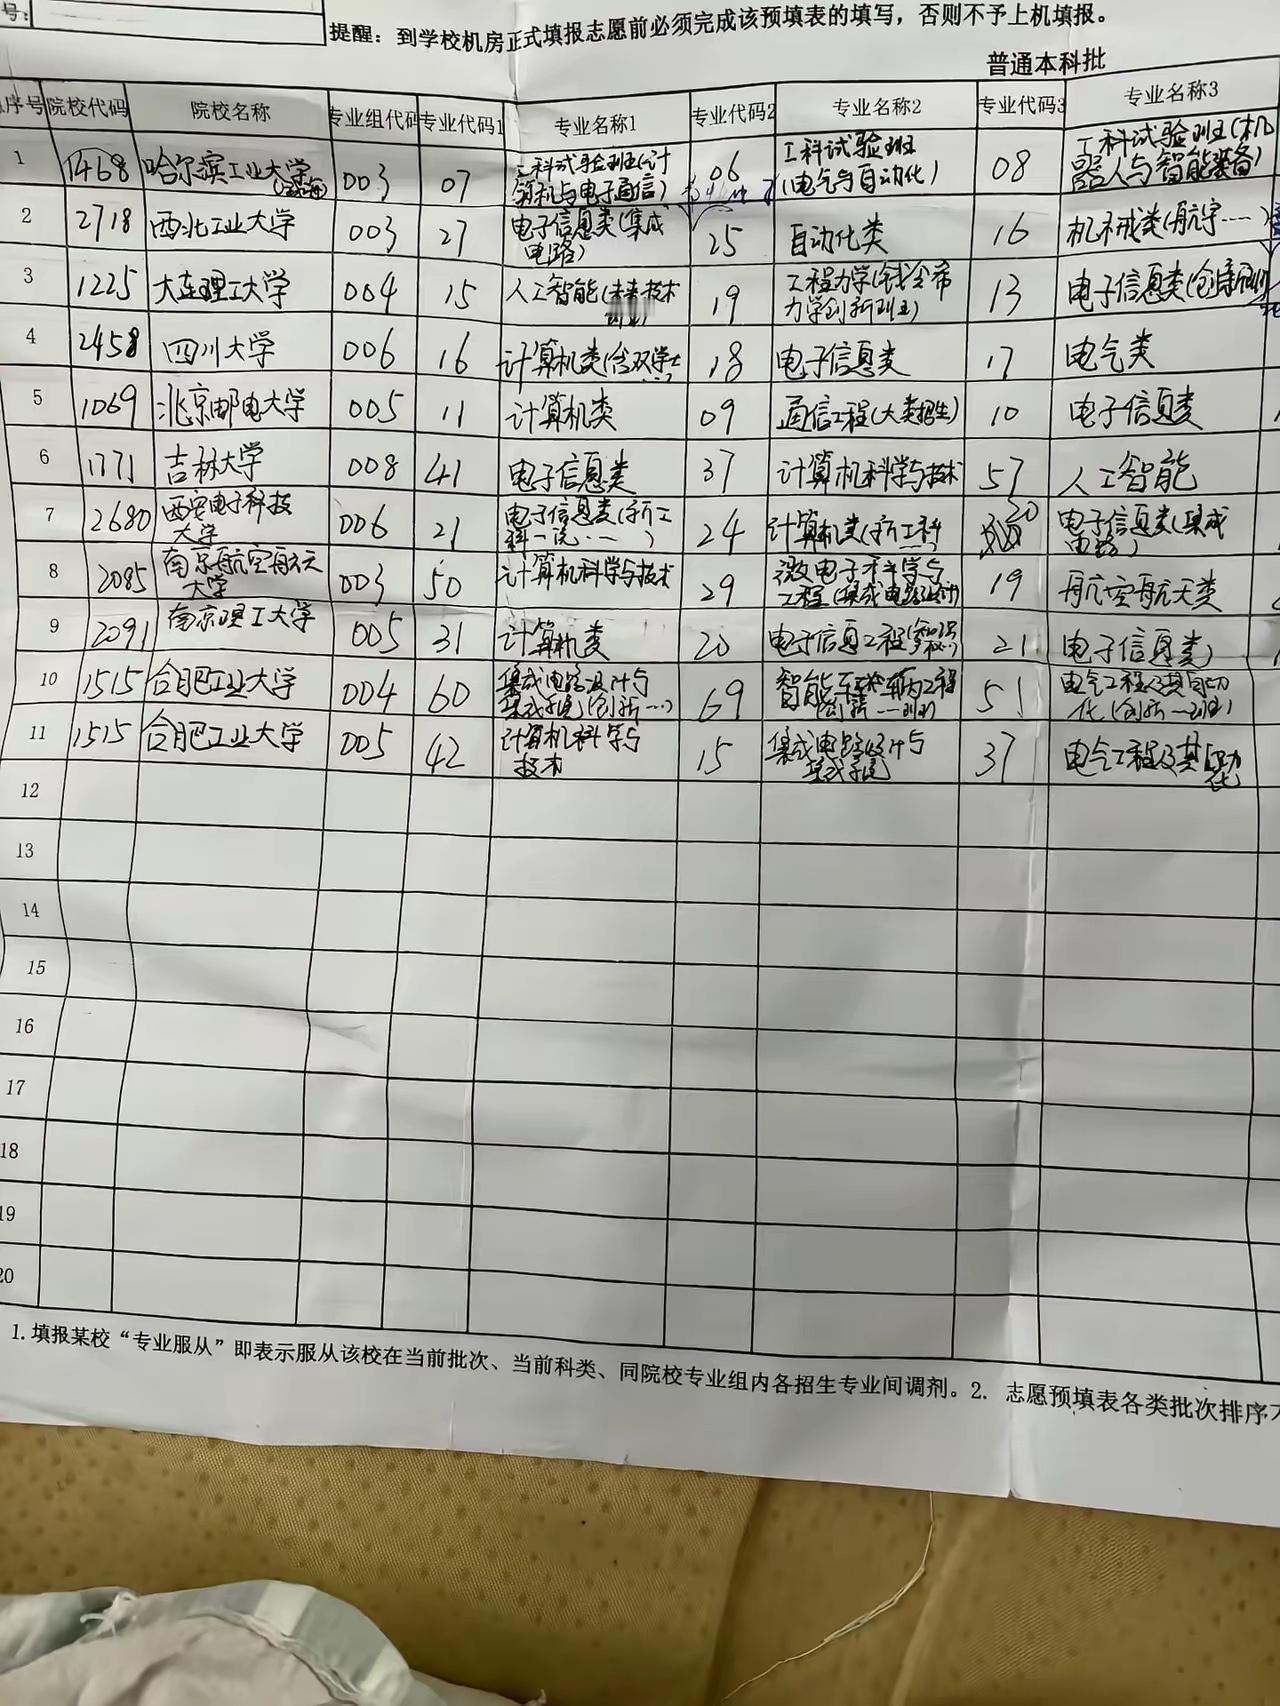 号:
提醒：到学校机房正式填报志愿前必须完成该预填表的填写，否则不予上机填报。
普通本科批
序号 院校代码 院校名称 专业组代码 专业代码1 专业名称1 专业代码2 专业名称2 专业代码3 专业名称3
1 1468 哈尔滨工业大学 003 07 工科试验班(计 06 工科试验班 08 工科试验班(机
算机与电子通信) (电气与自动化) 器人与智能装备)
2 2718 西北工业大学 003 27 电子信息类(集成 25 自动化类 16 机械类(航宇……)
电路)
3 1225 大连理工大学 004 15 人工智能(未来技术 19 工程力学(钱令希 13 电子信息类(创新班)
力学创新班)
4 2458 四川大学 006 16 计算机类(含双学士 18 电子信息类 17 电气类
5 1069 北京邮电大学 005 11 计算机类 09 通信工程(大类招生) 10 电子信息类
6 1771 吉林大学 008 41 电子信息类 37 计算机科学与技术 57 人工智能
7 2680 西安电子科技 006 21 电子信息类(新工 24 计算机类(新工科 20 电子信息类(集成
大学 科 电路)
8 2085 南京航空航天 003 50 计算机科学与技术 29 微电子科学与 19 航空航天类
大学 工程(集成电路设计)
9 2091 南京理工大学 005 31 计算机类 20 电子信息工程 21 电子信息类)
10 1515 合肥工业大学 004 60 集成电路设计与 69 智能车辆工程 51 电气工程及其自动
集成系统(创新…) (创新……班) 化(创新…班)
11 1515 合肥工业大学 005 42 计算机科学与 15 集成电路设计与 37 电气工程及其自动
技术 集成系统 化
12
13
14
15
16
17
18
19
20
1.填报某校“专业服从”即表示服从该校在当前批次、当前科类、同院校专业组内各招生专业间调剂。2. 志愿预填表各类批次排序不